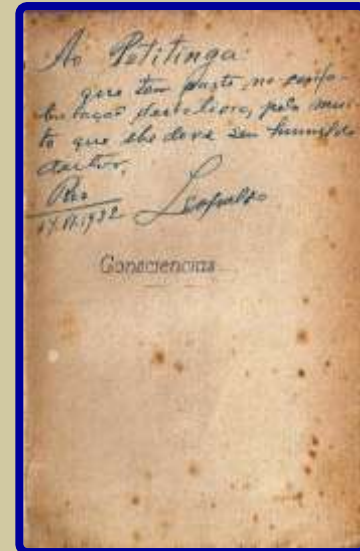 Ao Petitinga
que tem parte, no
deste livro, pelo mui-
to que lhe deve seu humilde
auctor,
Rio
1932 Leopoldo
Consciencias